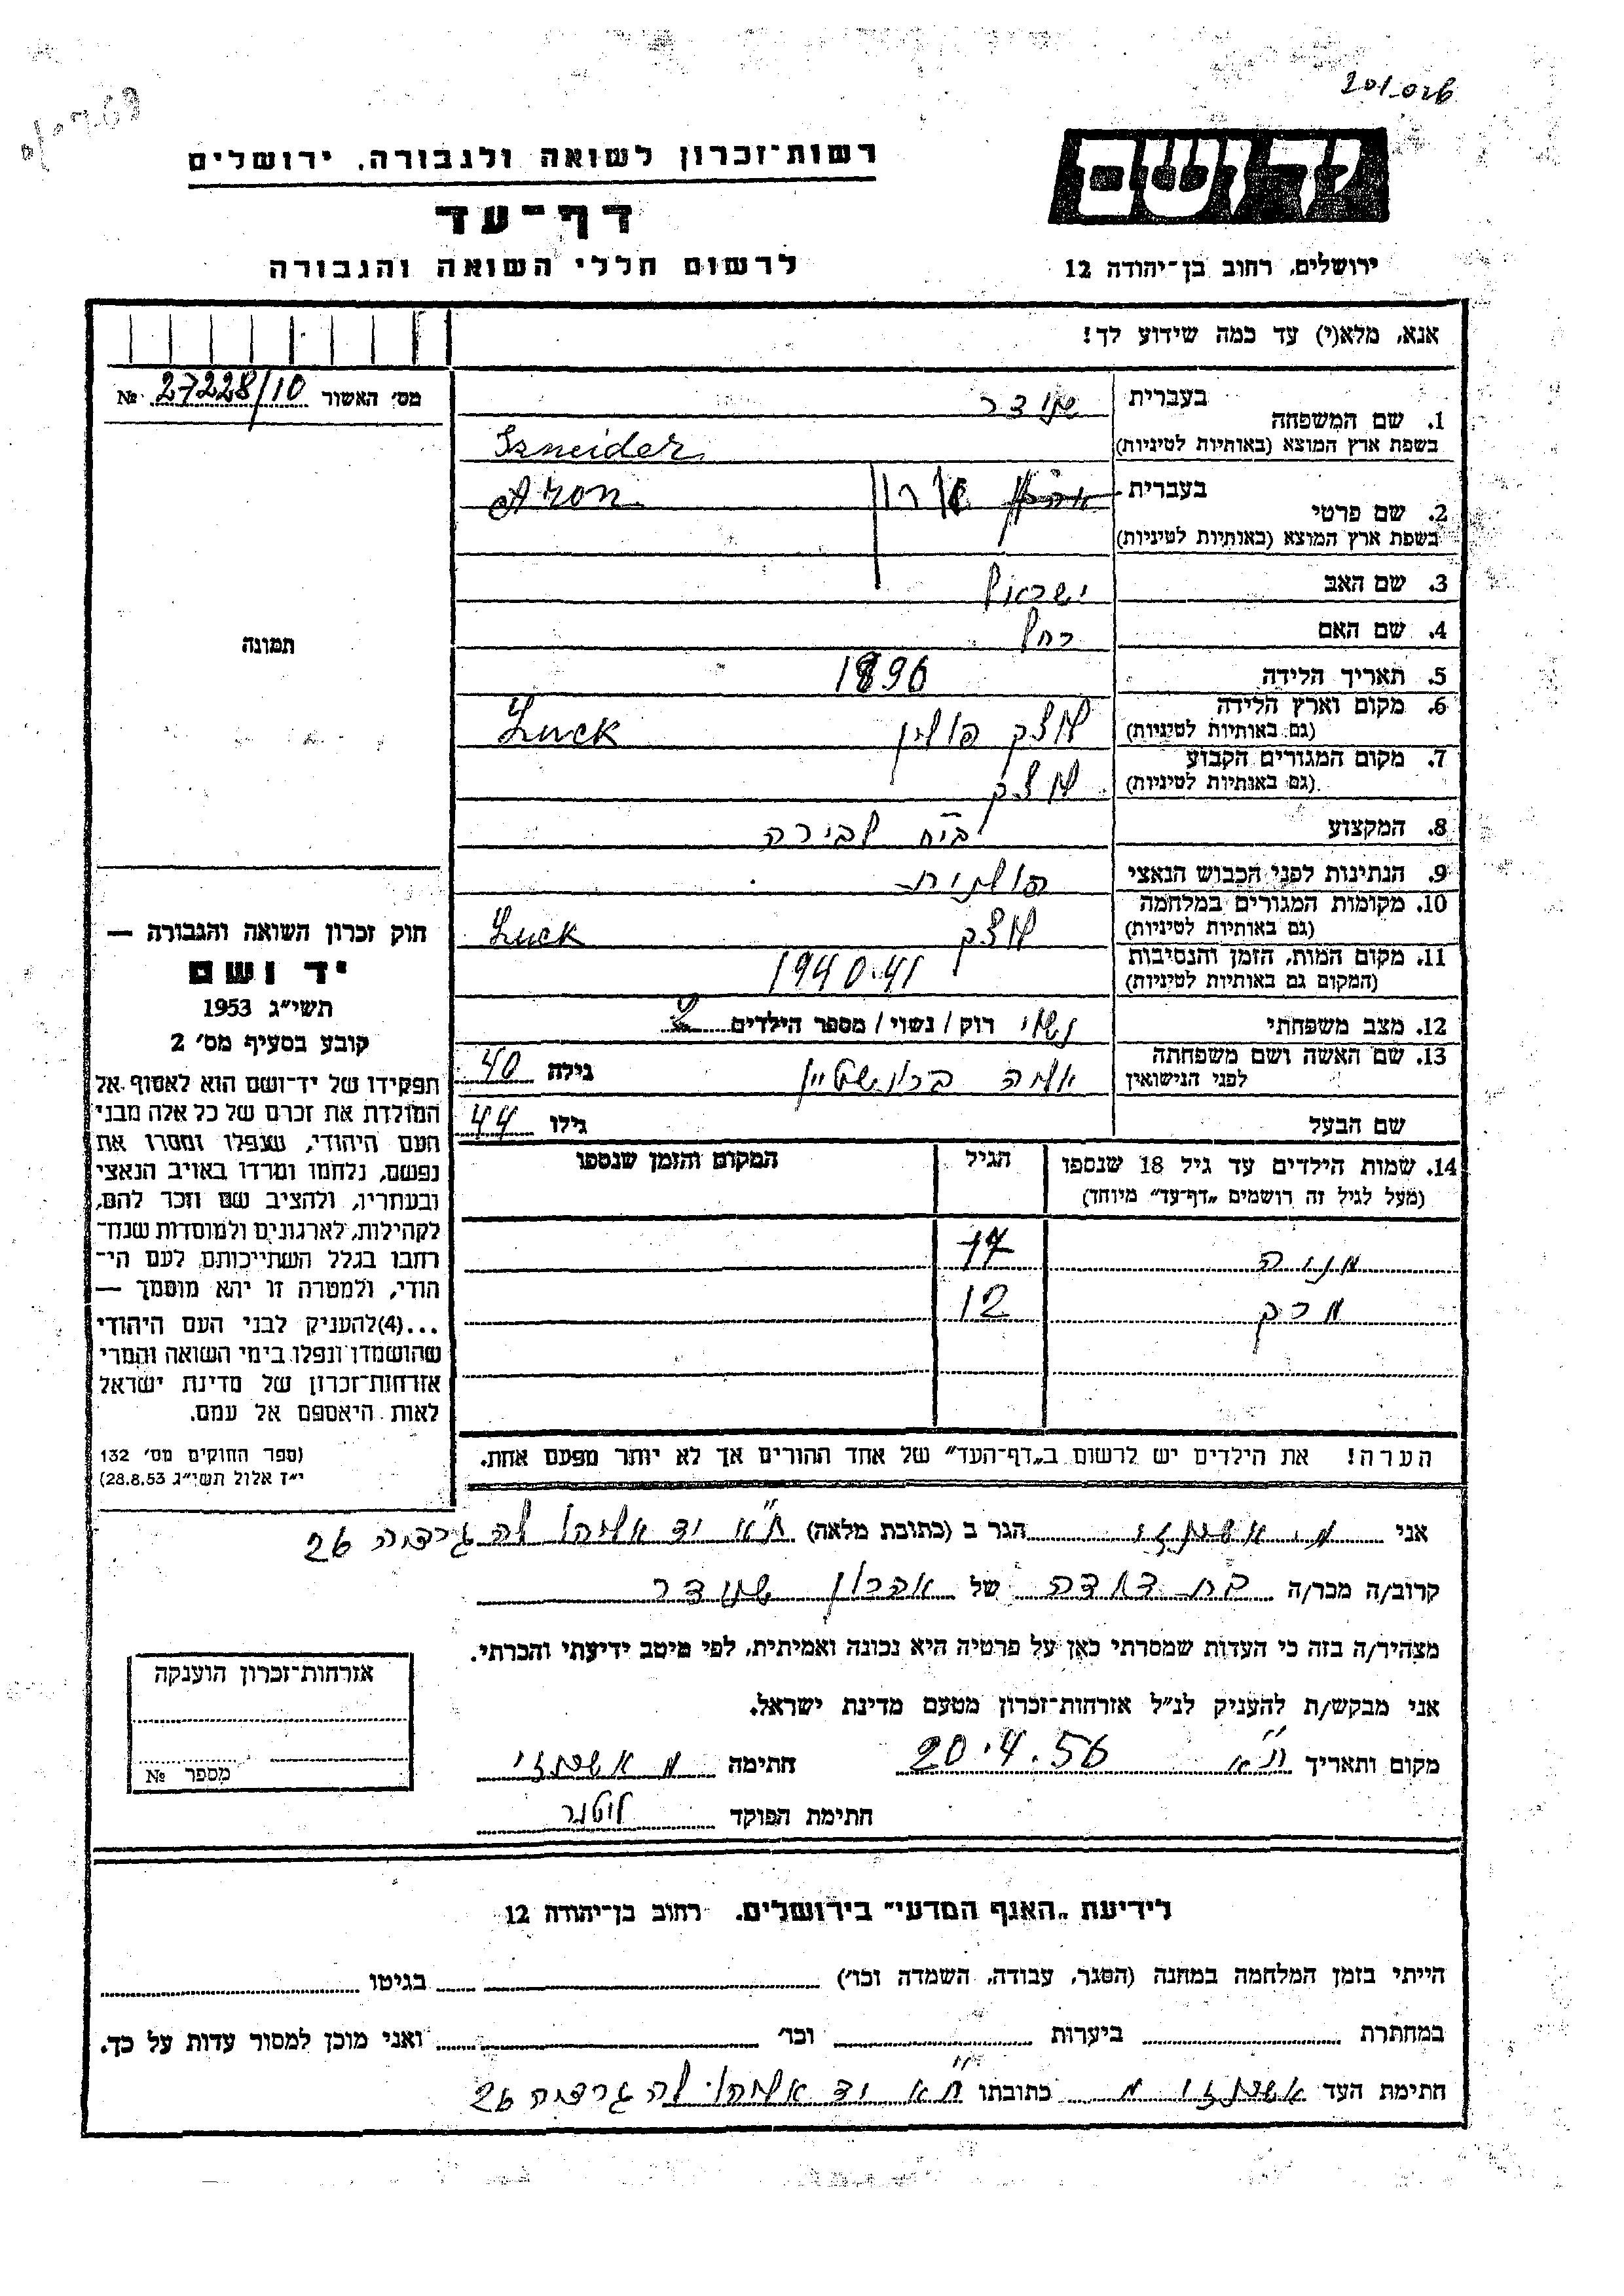 201026
רשות־זכרון לשואה ולגבורה, ירושלים
יד ושם
דף־עד
לרשום חללי השואה והגבורה
ירושלים, רחוב בן־יהודה 12
אנא, מלא(י) עד כמה שידוע לך!
מס׳ האשור 27228/10 №
1. שם המשפחה
בעברית שניידר
בשפת ארץ המוצא (באותיות לטיניות) Szneider
2. שם פרטי
בעברית אהרון Aron
בשפת ארץ המוצא (באותיות לטיניות)
3. שם האב ישראל
4. שם האם רחל
5. תאריך הלידה 1896
6. מקום וארץ הלידה לוצק פולין Łuck
(גם באותיות לטיניות)
7. מקום המגורים הקבוע לוצק
(גם באותיות לטיניות)
8. המקצוע בי״ח לבירה
9. הנתינות לפני הכבוש הנאצי פולנית
10. מקומות המגורים במלחמה לוצק Łuck
(גם באותיות לטיניות)
11. מקום המות, הזמן והנסיבות 1940.41
(המקום גם באותיות לטיניות)
12. מצב משפחתי נשוי רוק / נשוי / מספר הילדים 2
13. שם האשה ושם משפחתה ברונשטיין גילה 40
לפני הנישואין
שם הבעל גילו 44
14. שמות הילדים עד גיל 18 שנספו הגיל המקום והזמן שנספו
(מעל לגיל זה רושמים „דף־עד״ מיוחד)
17
מרק 12
הערה! את הילדים יש לרשום ב„דף־העד״ של אחד ההורים אך לא יותר מפעם אחת.
תמונה
חוק זכרון השואה והגבורה —
יד ושם
תשי״ג 1953
קובע בסעיף מס׳ 2
תפקידו של יד־ושם הוא לאסוף אל
המולדת את זכרם של כל אלה מבני
העם היהודי, שנפלו ומסרו את
נפשם, נלחמו ומרדו באויב הנאצי
ובעוזריו, ולהציב שם וזכר להם,
לקהילות, לארגונים ולמוסדות שנח־
רבו בגלל השתייכותם לעם הי־
הודי, ולמטרה זו יהא מוסמך —
...(4) להעניק לבני העם היהודי
שהושמדו ונפלו בימי השואה והמרי
אזרחות־זכרון של מדינת ישראל
לאות היאספם אל עמם.
(ספר החוקים מס׳ 132
י״ז אלול תשי״ג 28.8.53)
אני מ. הגר ב (כתובת מלאה) ת״א יד אליהו לה גרדיה 26
קרוב/ה מכר/ה בת דודה של אהרון שניידר
מצהיר/ה בזה כי העדות שמסרתי כאן על פרטיה היא נכונה ואמיתית, לפי מיטב ידיעתי והכרתי.
אני מבקש/ת להעניק לנ״ל אזרחות־זכרון מטעם מדינת ישראל.
מקום ותאריך ת״א 20.4.56 חתימה
חתימת הפוקד
אזרחות־זכרון הוענקה
מספר №
לידיעת „האגף המדעי״ בירושלים. רחוב בן־יהודה 12
הייתי בזמן המלחמה במחנה (הסגר, עבודה, השמדה וכו׳) בגיטו
במחתרת ביערות וכו׳ ואני מוכן למסור עדות על כך.
חתימת העד כתובתו ת״א יד אליהו לה גרדיה 26